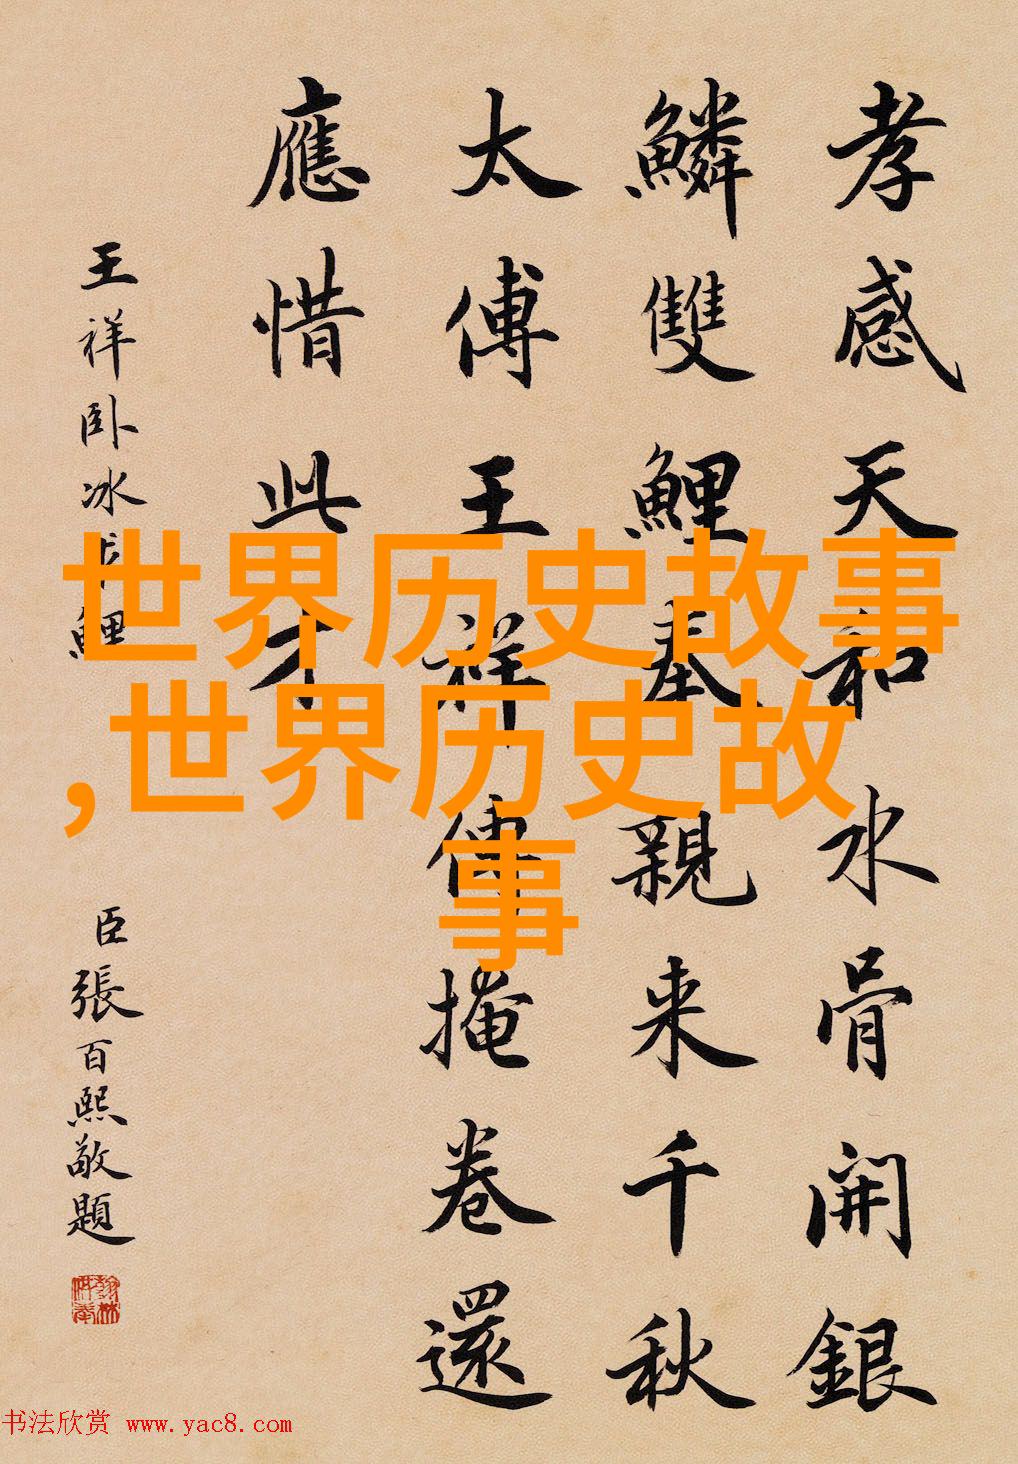 孝感天和水骨開銀
鱗雙鯉奉親来千秋
太傅王祥傳掩卷還
應惜此才
王祥卧冰求鯉
臣張百熙敬題
世界历史故事
,世界历史故
事
书法欣赏 www.yac8.com